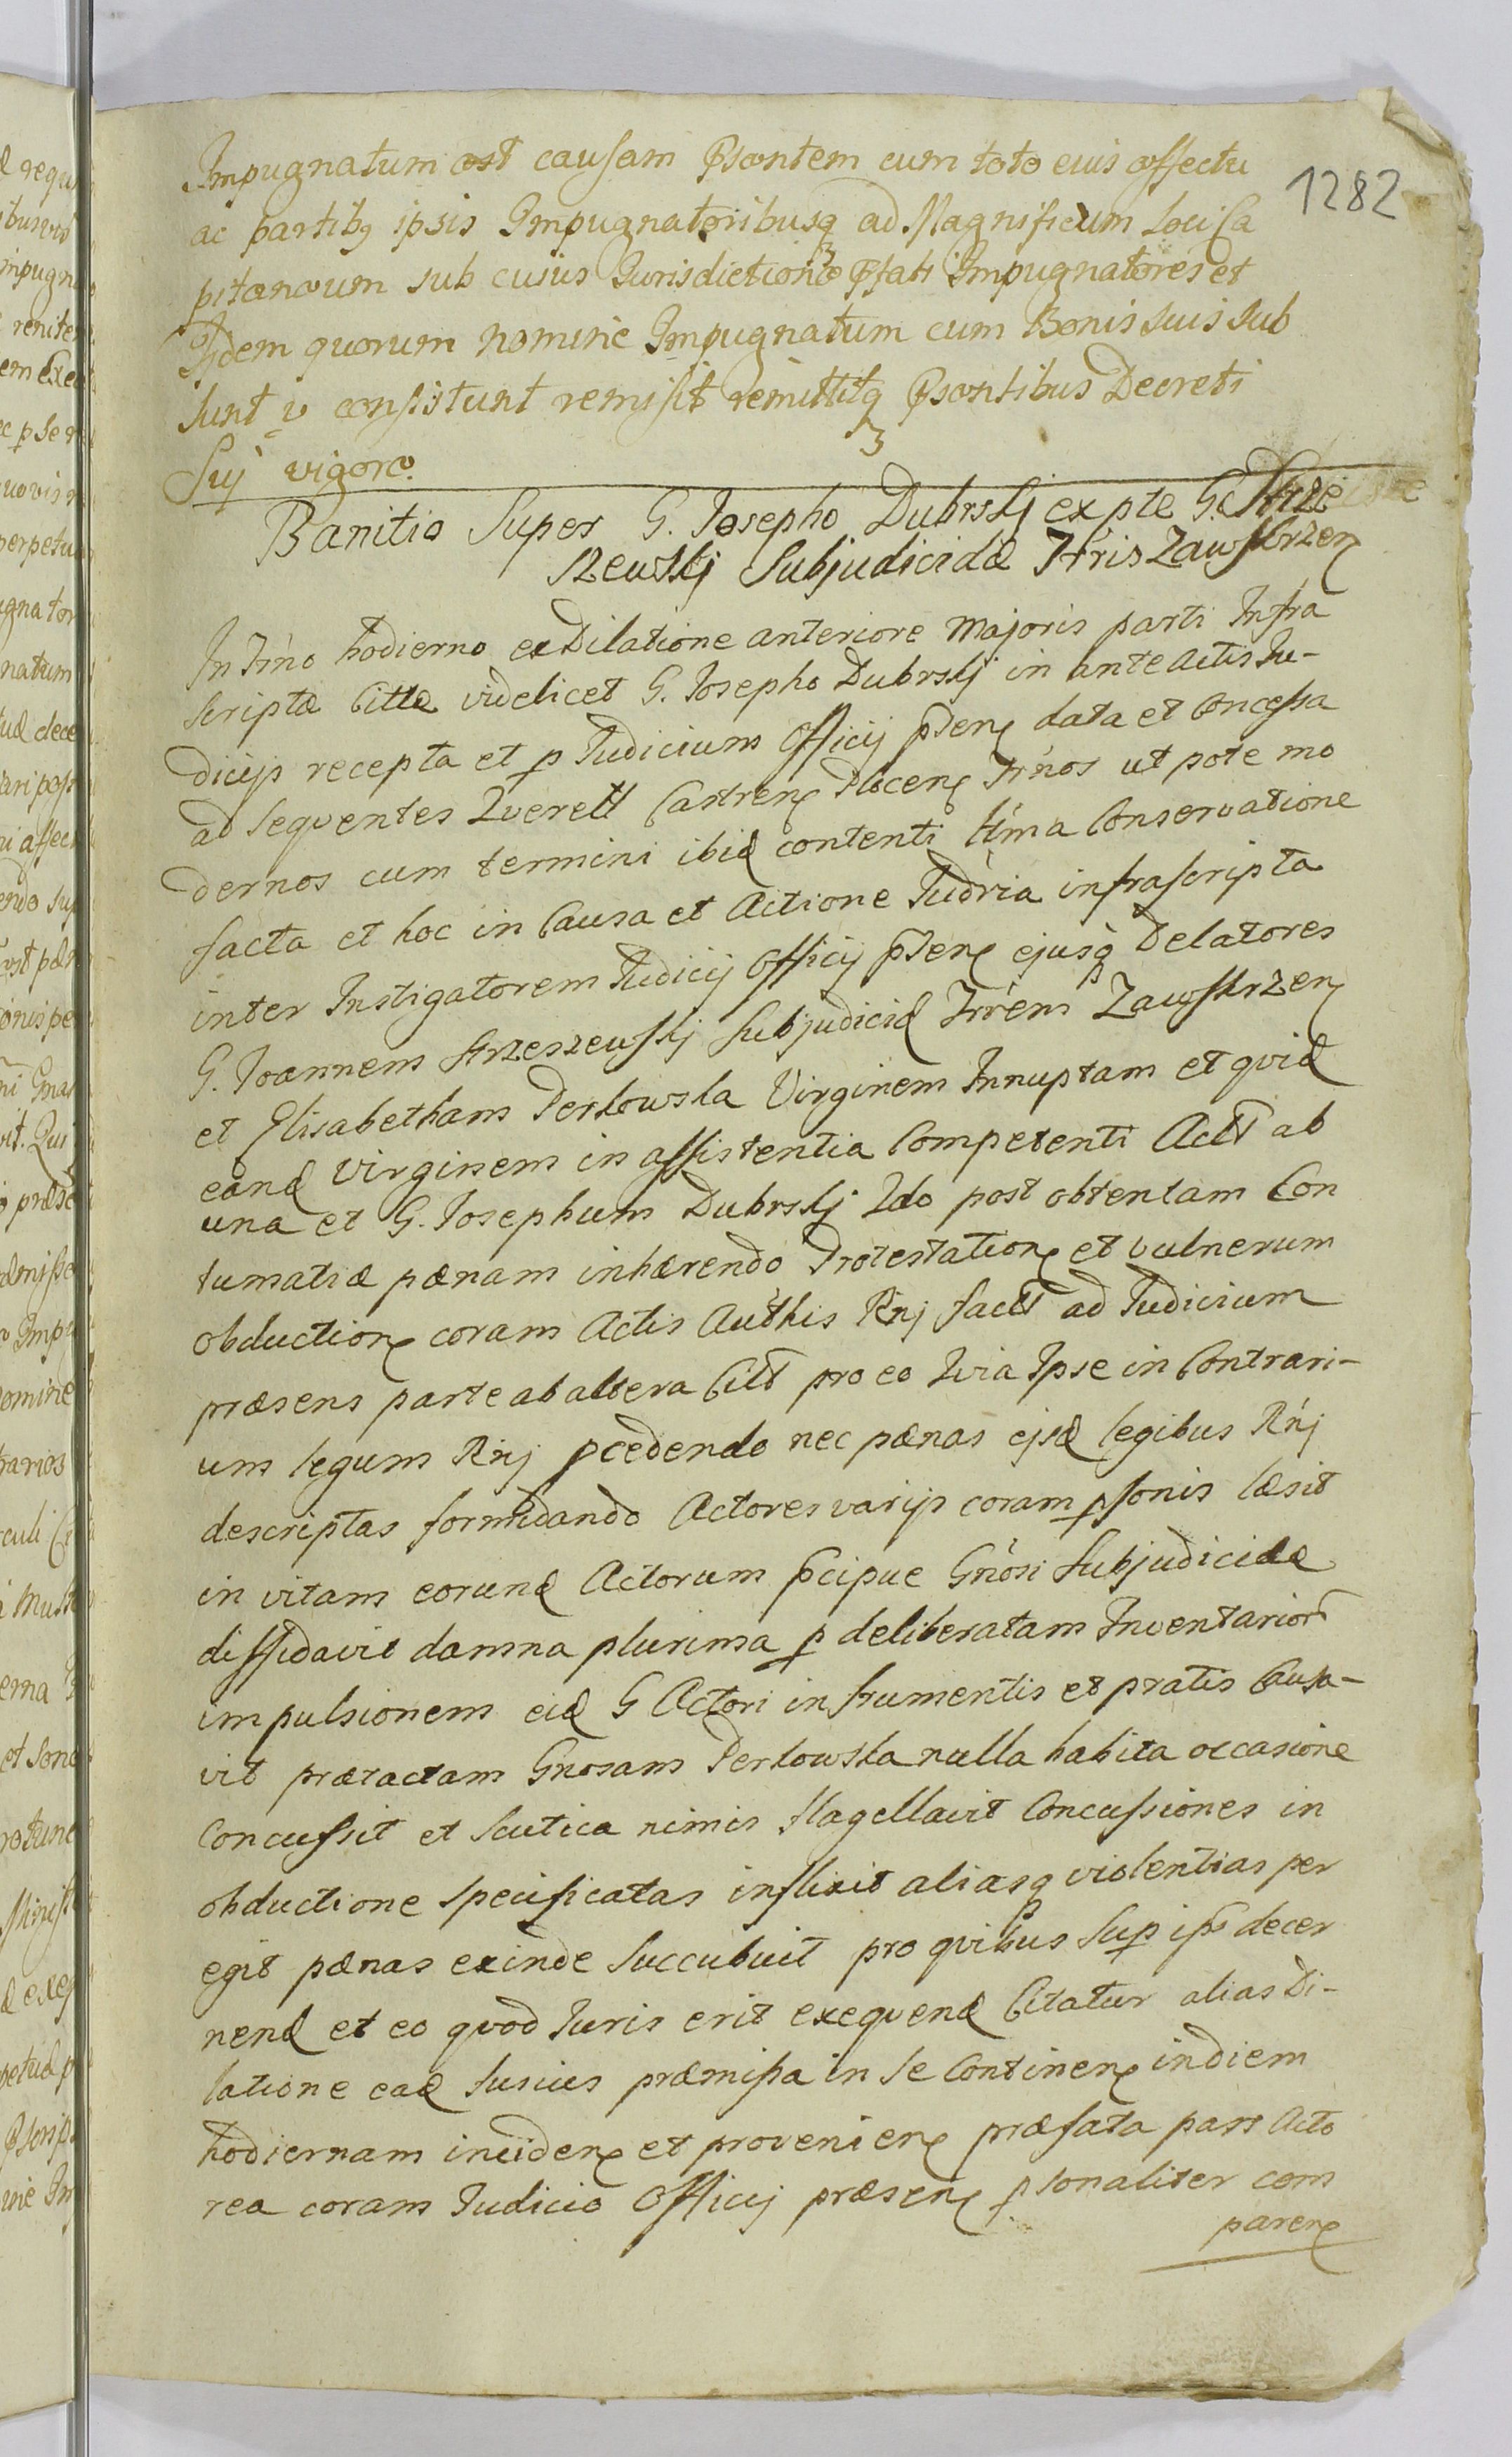 1282
Impugnatum est causam Psentem cum toto eius effectu
ac partibq ipsis Impugnatoribusq ad Magnificum loci Ca
pitaneum sub cuius Jurisdictione Pfati Impugnatores et
Ijdem quorum nomine Impugnatum cum Bonis suis sub
sunt v consistunt remisit remittitq Psentibus Decreti
Suj vigore.
Banitio Super G. Josepho Dubrskj ex pte G. Strze
szewskj Subjudicidæ Trris Zawskrzen
In Trno hodierno ex Dilatione anteriore Majoris parti Infra
scriptæ Cittæ videlicet G. Josepho Dubrskj in ante actis Ju-
dicijs recepta et p Judicium Officij Psen data et Concessa
ad sequentes Querell Castren Plocen Trnos ut pote mo
dernos cum termini ibid contenti ltima Conservatione
facta et hoc in Causa et Actione Judria infrascripta
inter Instigatorem Judicij Officij Psen ejusq Delatores
G. Joannem Strzeszewskj Subjudicid Trrem Zawskrzen
et Elisabetham Perkowska Virginem Innuptam et quid
eand Virginem in assistentia Competenti Actt ab
una et G. Josephum Dubrskj 2do post obtentam Con
tumatiæ pænam inhærendo Protestation et vulnerum
obduction coram Actis Authis Rnj factt ad Judicium
præsens parte ab altera Citt pro eo Quia Ipse in Contrari-
um legum Rnj pcedendo nec pænas ejsd legibus Rnj
descriptas formidando Actores varijs coram psonis læsit
in vitam eorund Actorum pcipue Gnosi Subjudicidæ
diffidavit damna plurima p deliberatam Inventarior
impulsionem eid G Actori in frumentis et pratis Causa-
vit prætactam Gnosam Perkowska nulla habita occasione
Concussit et scutica nimis flagellavit Concussiones in
obductione specificatas inflixit aliasq violentias per
egit pænas exinde succubuit pro quibus Sup ips decer
nend et eo quod Juris erit exequend Citatur alias Di-
latione ead fusius præmissa in se Continen in diem
hodiernam inciden et provenien præfata pars Acto
rea coram Judicio Officij præsen psonaliter com
paren